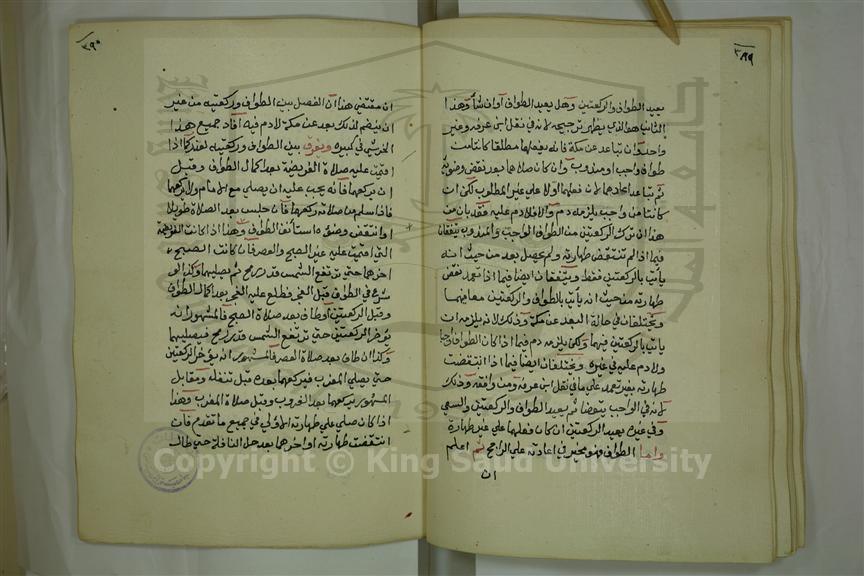 ٣٨٩
يعيد الطواف والركعتين وهل يعيد الطواف او ان شاء وهذا
الثاني هو الذي يظهر ترجيحه لانه في نقل ابن عرفه وغير
واحد وان تباعد عن مكة فانه يفعلهما مطلقا كانتا من
طواف واجب او مندوب وان كان صلاهما بعد نقض وضوئه
ثم تباعد اعادهما لانه فعلهما اولا على غير المطلوب لكن ان
كانتا من واجب يلزمه دم والا فلا دم عليه فقد بان من
هذا ان ترك الركعتين من الطواف الواجب والمندوب يتفقان
فيما اذا لم تنتقض طهارته ولم يحصل بعد من حيث انه
يأتي بالركعتين فقط ويتفقان ايضا فيما اذا تعمد نقض
طهارته من حيث انه يأتي بالطواف والركعتين معا فيهما
ويختلفان في حالة البعد عن مكة وذلك لانه يلزمه ان
يأتي بالركعتين فيهما ولكن يلزمه دم فيما اذا كان الطواف واجبا
ولا دم عليه في غيره ويختلفان ايضا فيما اذا انتقضت
طهارته بغير تعمد على ما في نقل ابن عرفة ومن وافقه وذلك
لانه في الواجب يتوضا ثم يعيد الطواف والركعتين والسعي
وفي غيره يعيد الركعتين ان كان فعلهما على غير طهارة
واما الطواف فهو مخير في اعادته على الراجح ثم اعلم
ان
٣٩٠
ان مقتضى هذا ان الفصل بين الطواف وركعتيه من غير
ان ينضم لذلك بعد عن مكة لا دم فيه افاد جميع هذا
الخرشي في كبيره ويفرق بين الطواف وركعتيه لعذر كما اذا
اقيمت عليه صلاة الفريضة بعد اكمال الطواف وقبل
ان يركعهما فانه يجب عليه ان يصلي مع الامام ولا يركعهما
فاذا سلم من صلاته ركعهما فان جلس بعد الصلاة طويلا
او انتقض وضوءه استأنف الطواف وهذا اذا كانت الفريضة
التي اقيمت عليه غير الصبح والعصر فان كانت الصبح
اخرهما حتى ترتفع الشمس قدر رمح ثم يصليهما وكذا لو
شرع في الطواف قبل الفجر فطلع عليه الفجر بعد اكمال الطواف
وقبل الركعتين او طاف بعد صلاة الصبح فالمشهور انه
يؤخر الركعتين حتى ترتفع الشمس قدر رمح فيصليهما
وكذا ان طاف بعد صلاة العصر فالمشهور انه يؤخر الركعتين
حتى يصلي المغرب فيركعهما بعده قبل تنفله ومقابل
المشهور يركعهما بعد الغروب وقبل صلاة المغرب وهذا
اذا كان صلى على طهارته الاولى في جميع ما تقدم فان
انتقضت طهارته او اخرهما بعد حل النافلة حتى طال
Copyright © King Saud University